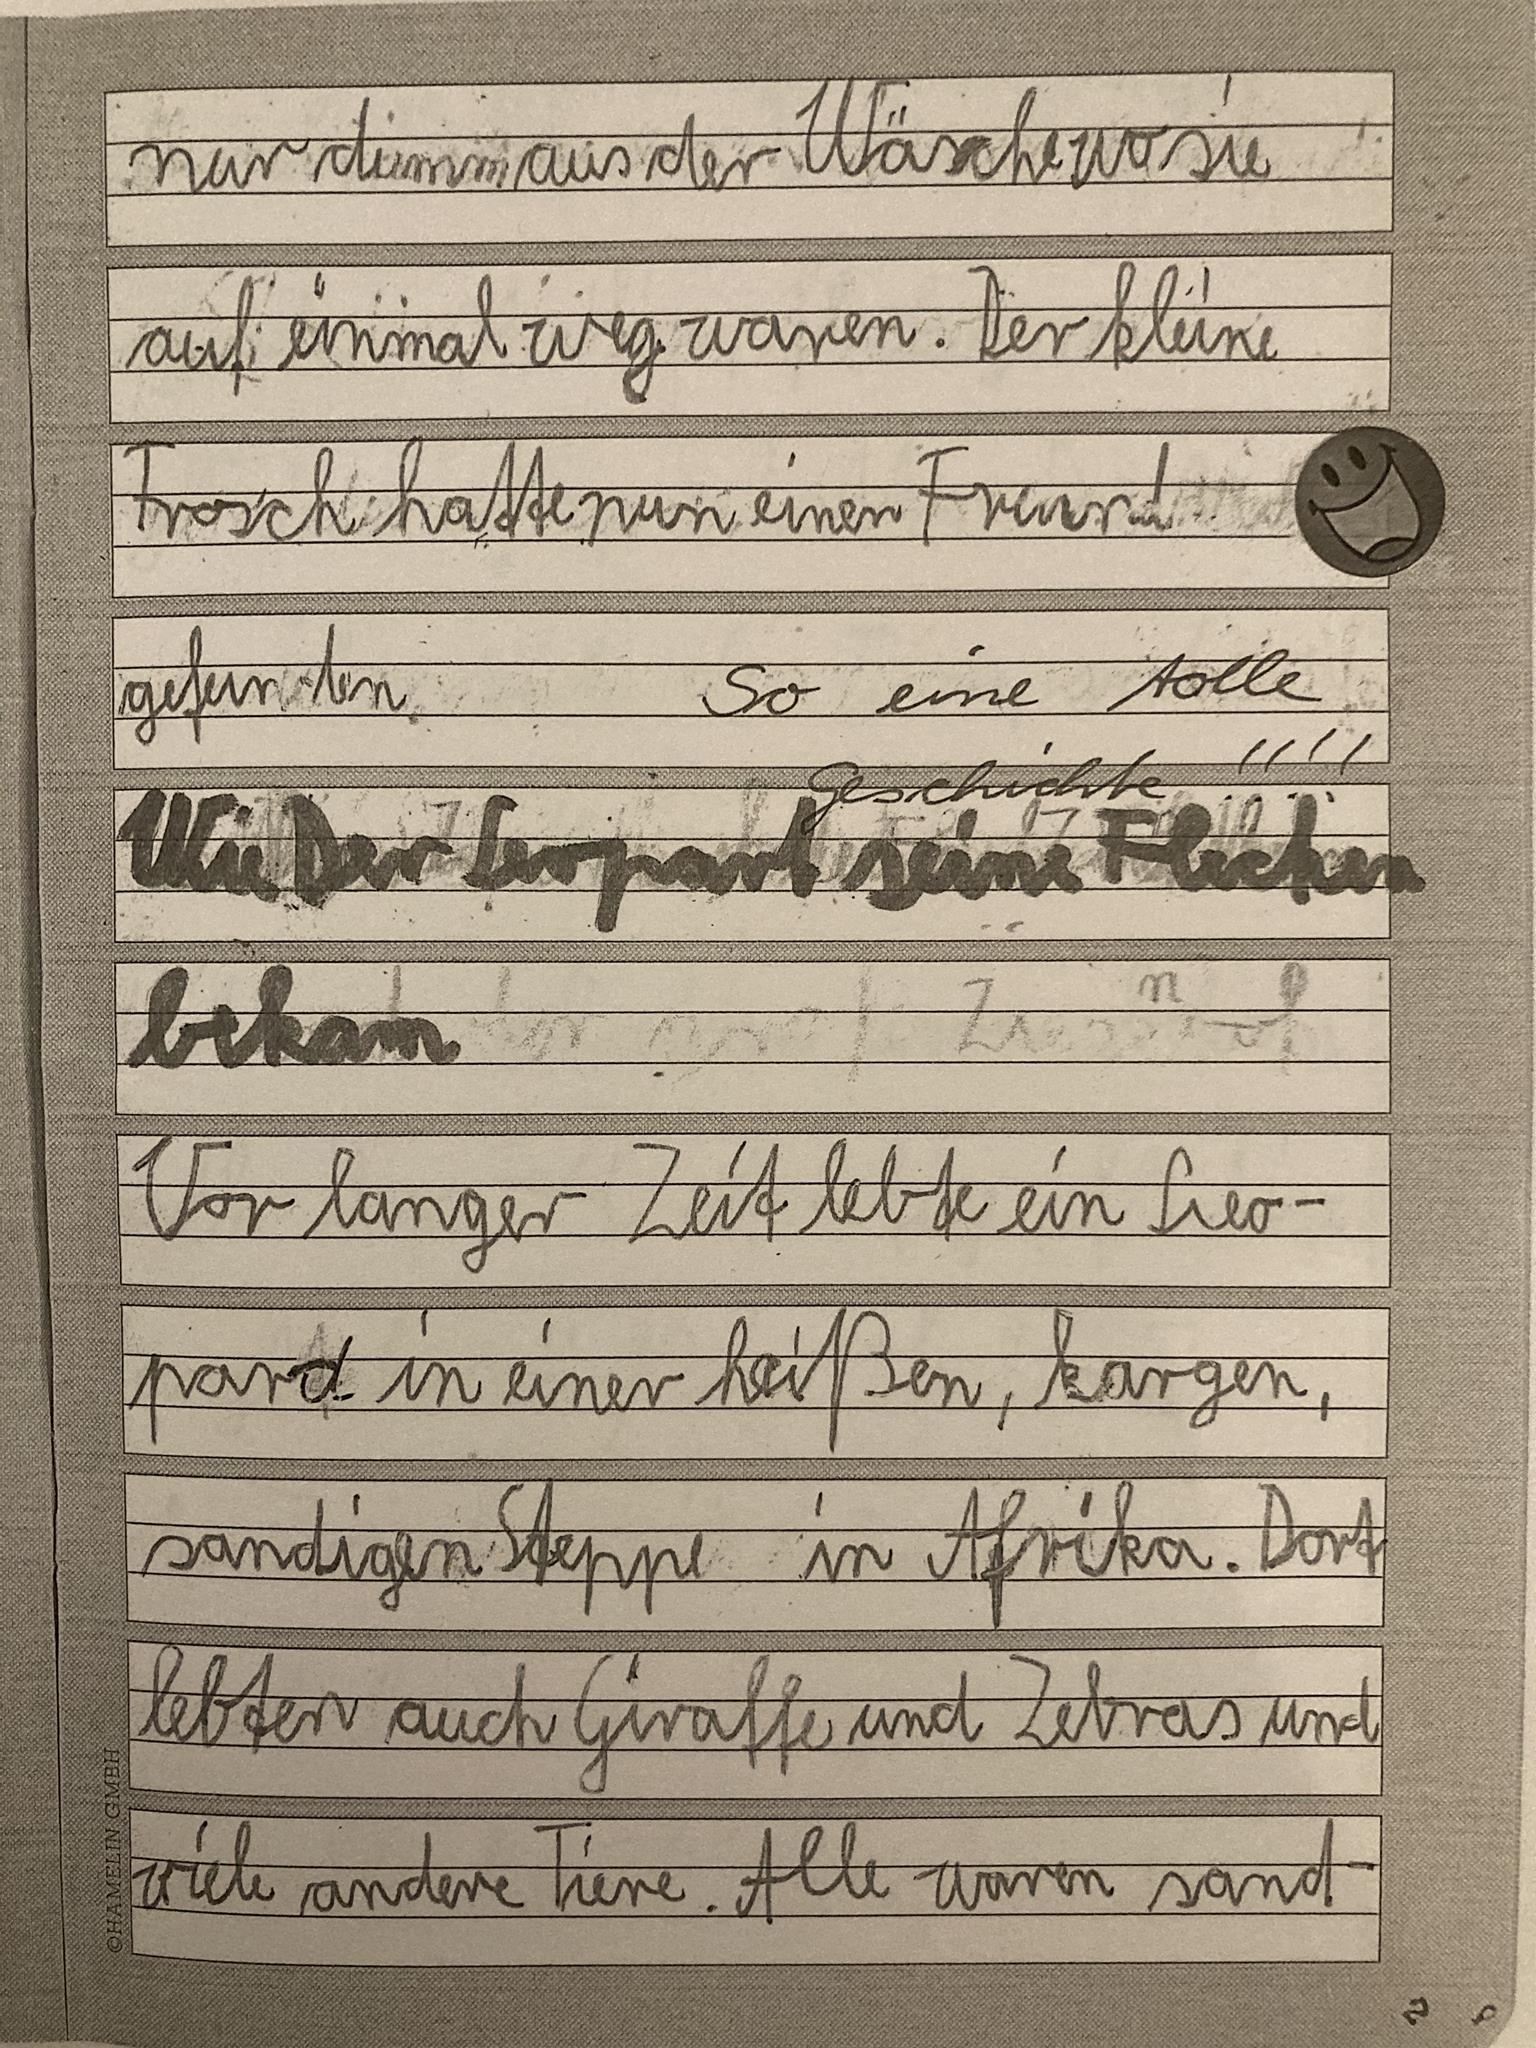 nur dumm aus der Wäsche wo sie
auf einmal weg waren. Der kleine
Frosch hatte nun einen Freund
gefunden.
So eine tolle
Geschichte !!!!
Wie Der Leopart seine Flecken
bekam
Vor langer Zeit lebte ein Leo-
pard in einer heißen, kargen,
sandigen Steppe in Afrika. Dort
lebten auch Giraffe und Zebras und
viele andere Tiere. Alle waren sand-
©HAMELIN GMBH